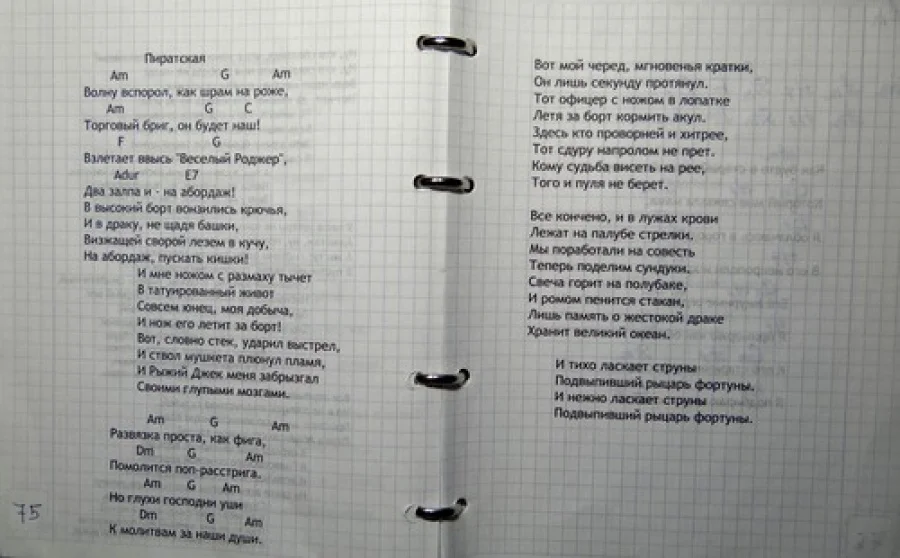 Пиратская
Am G Am
Волну вспорол, как шрам на роже,
Am G C
Торговый бриг, он будет наш!
F G
Взлетает ввысь "Веселый Роджер",
Adur E7
Два залпа и - на абордаж!
В высокий борт вонзились крючья,
И в драку, не щадя башки,
Визжащей сворой лезем в кучу,
На абордаж, пускать кишки!
И мне ножом с размаху тычет
В татуированный живот
Совсем юнец, моя добыча,
И нож его летит за борт!
Вот, словно стек, ударил выстрел,
И ствол мушкета плюнул пламя,
И Рыжий Джек меня забрызгал
Своими глупыми мозгами.
Am G Am
Развязка проста, как фига,
Dm G Am
Помолится поп-расстрига.
Am G Am
Но глухи господни уши
Dm G Am
К молитвам за наши души.
75
Вот мой черед, мгновенья кратки,
Он лишь секунду протянул.
Тот офицер с ножом в лопатке
Летя за борт кормить акул.
Здесь кто проворней и хитрее,
Тот сдуру напролом не прет.
Кому судьба висеть на рее,
Того и пуля не берет.
Все кончено, и в лужах крови
Лежат на палубе стрелки.
Мы поработали на совесть
Теперь поделим сундуки.
Свеча горит на полубаке,
И ромом пенится стакан,
Лишь память о жестокой драке
Хранит великий океан.
И тихо ласкает струны
Подвыпивший рыцарь фортуны.
И нежно ласкает струны
Подвыпивший рыцарь фортуны.